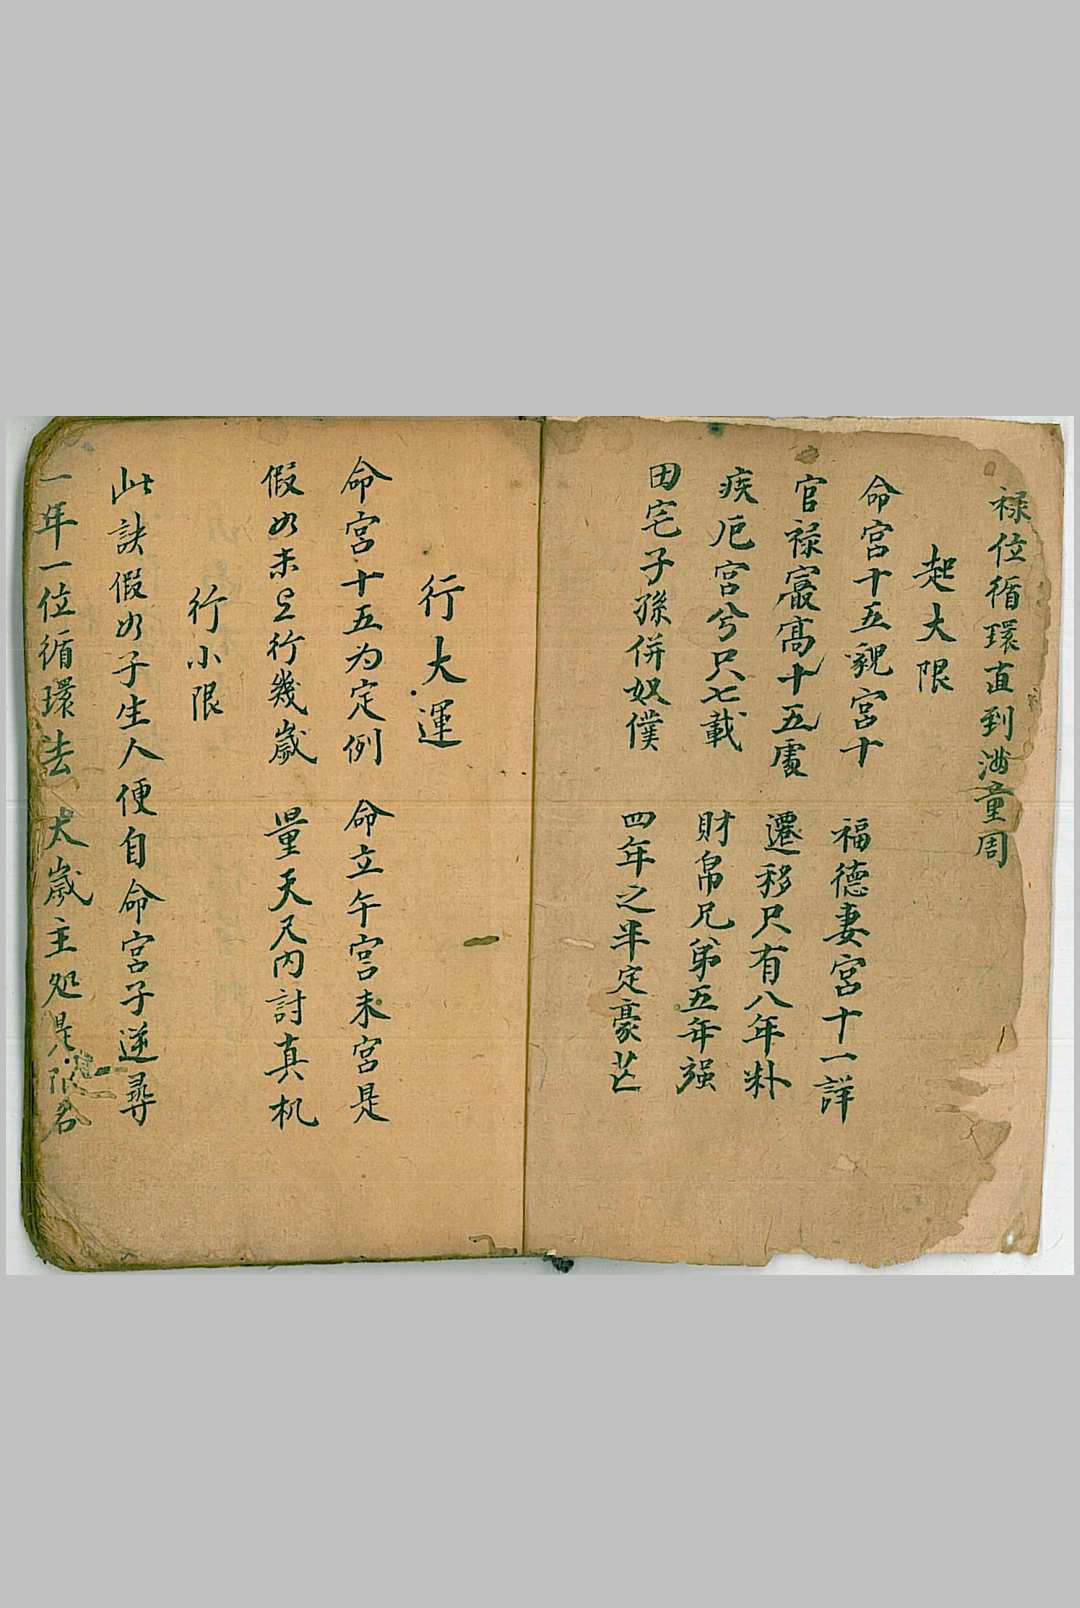 禄位循環直到滿童周
起大限
命宮十五親宮十 福德妻宮十一詳
官禄寂高十五處 遷移只有八年粁
疾厄宮兮只七載 財帛兄弟五年強
田宅子孫併奴僕 四年之半定豪芒
行大運
命宮十五为定例 命立午宮未宮是
假如未 行幾歲 量天尺內討真机
行小限
此訣假如子生人便自命宮子逆尋
一年一位循環法 太歲主处是限名